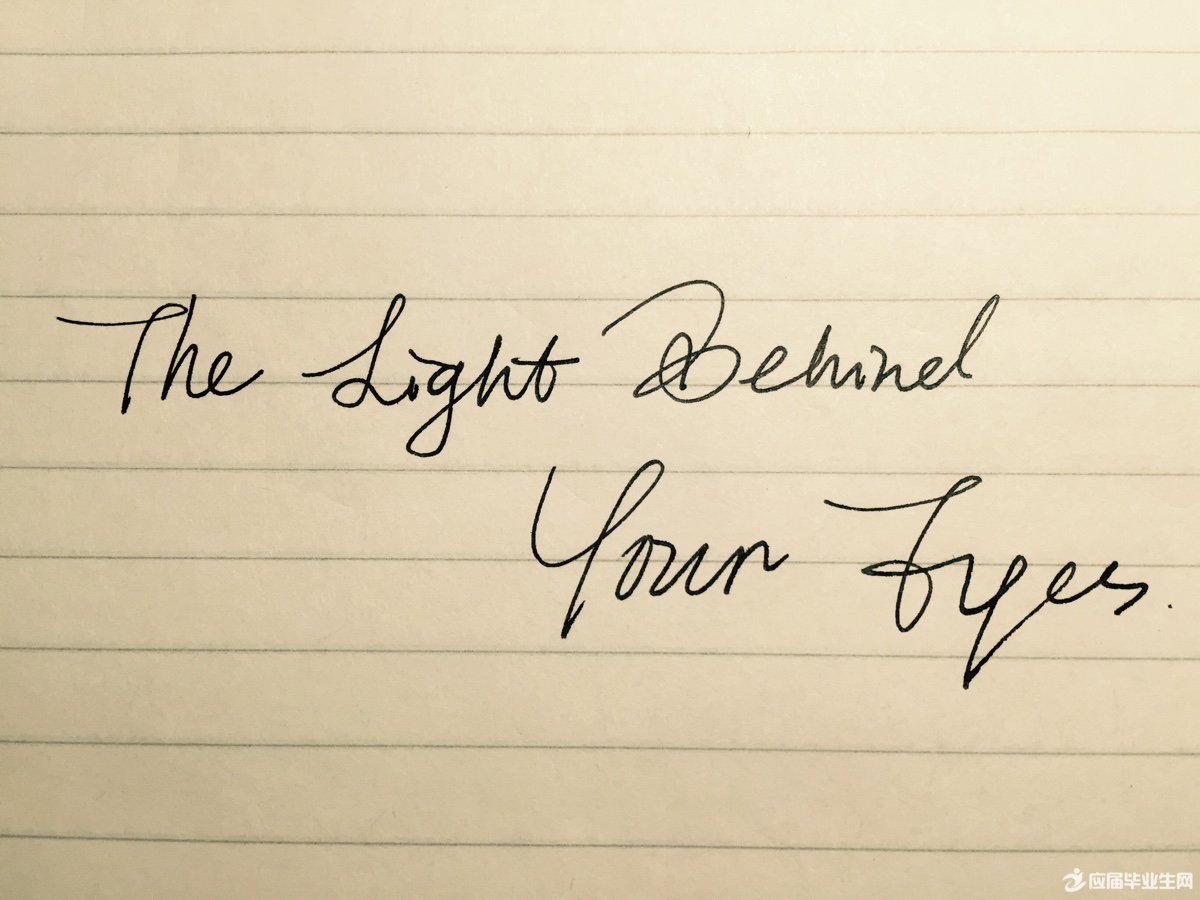 The Light Behind
Your Eyes.
应届毕业生网